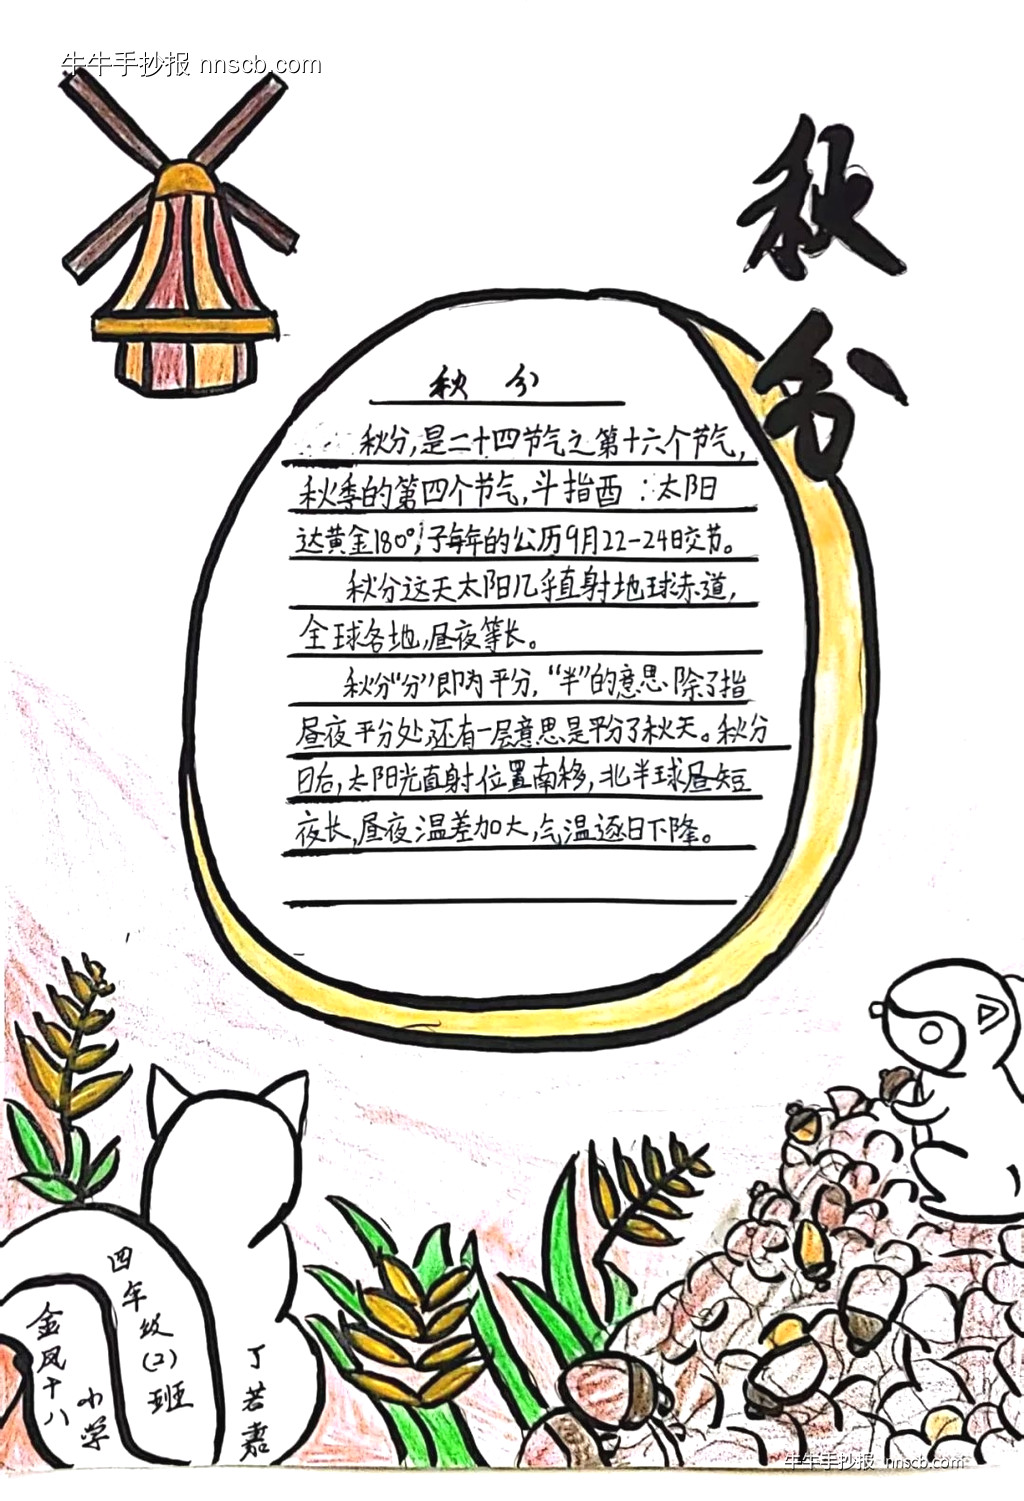 牛牛手抄报 nnscb.com
秋分
秋 分
秋分,是二十四节气之第十六个节气,
秋季的第四个节气,斗指酉:太阳
达黄金180°;子每年的公历9月22-24日交节。
秋分这天太阳几乎直射地球赤道,
全球各地,昼夜等长。
秋分“分”即为平分,“半”的意思除了指
昼夜平分处,还有一层意思是平分了秋天。秋分
日后,太阳光直射位置南移,北半球昼短
夜长,昼夜温差加大,气温逐日下降。
金凤十八
小学
四年级
(2)班
丁若
牛牛手抄报 nnscb.com